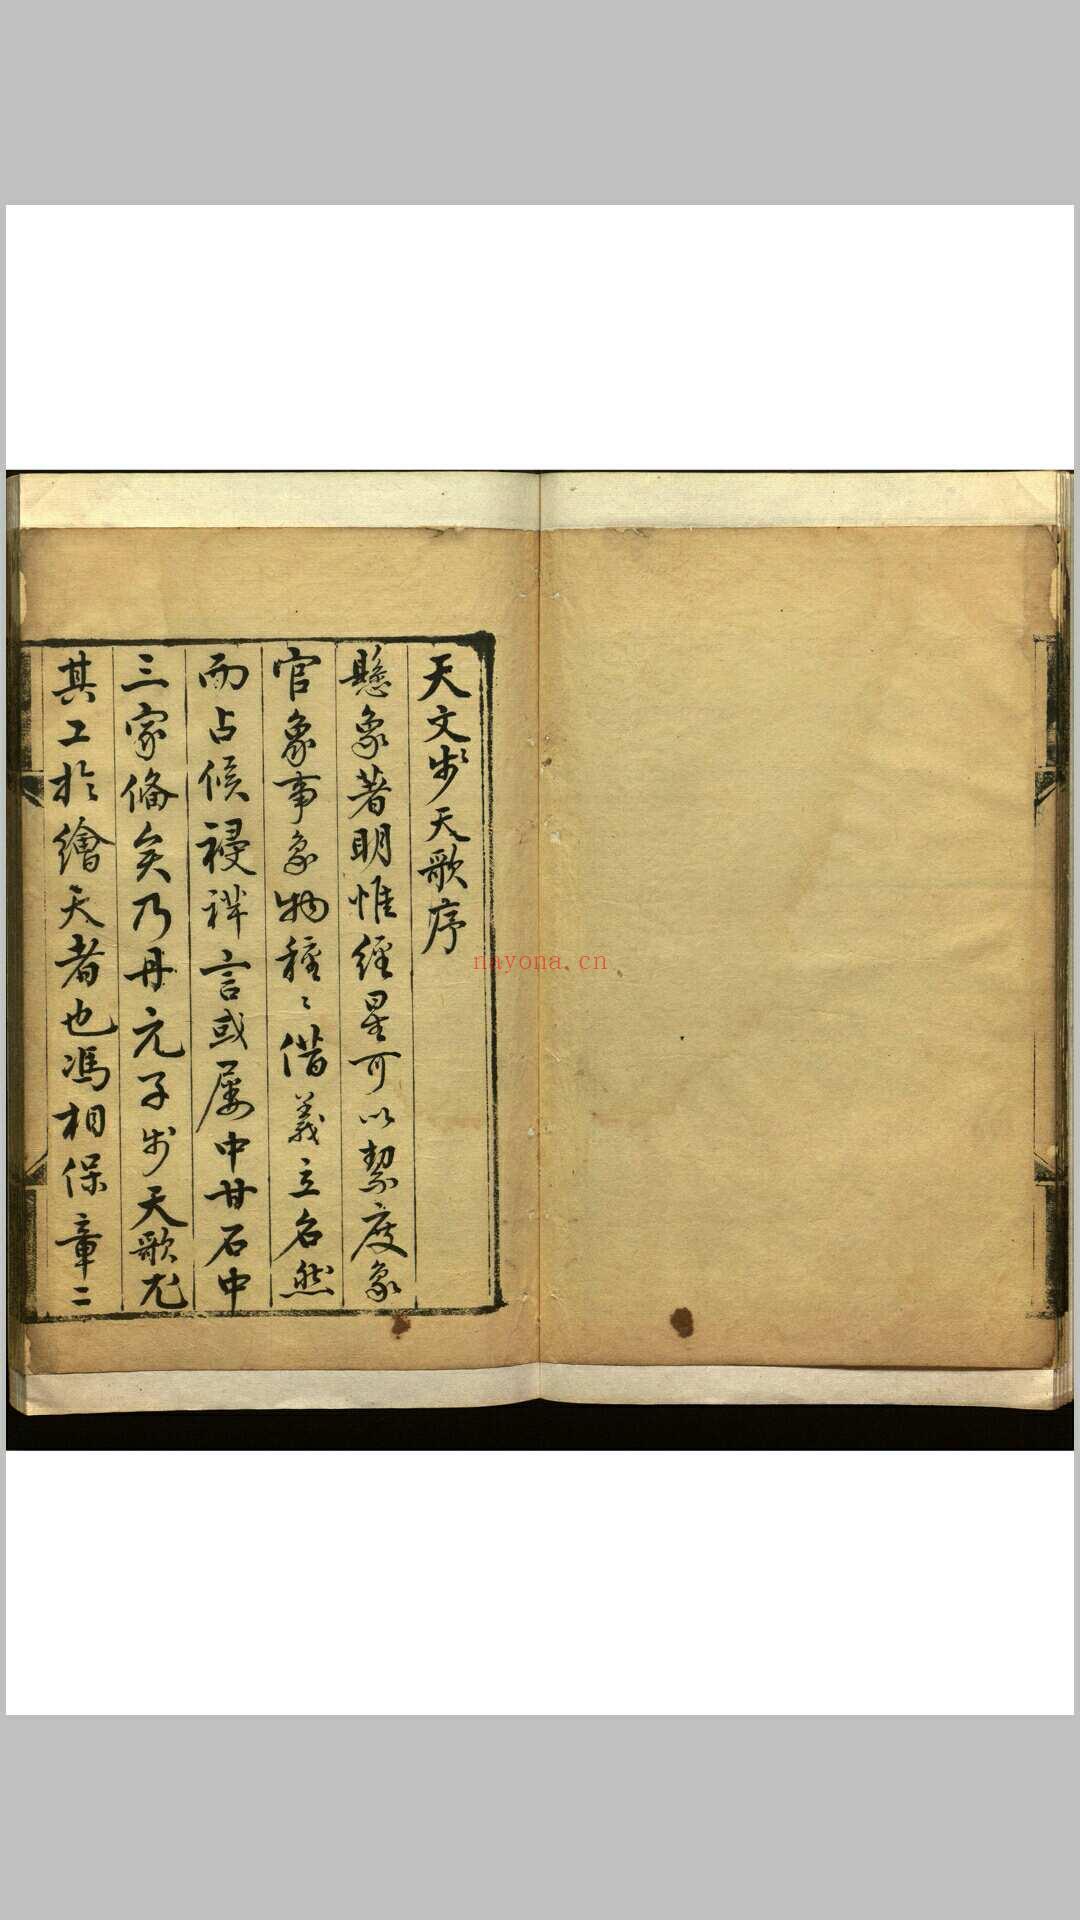 天文步天歌序
懸象著明惟經星可以挈度象
官象事象物種〻借義立名然
而占候祲祥言或屢中甘石中
三家俻矣乃丹元子步天歌尤
其工於繪天者也馮相保章二
nayona.cn